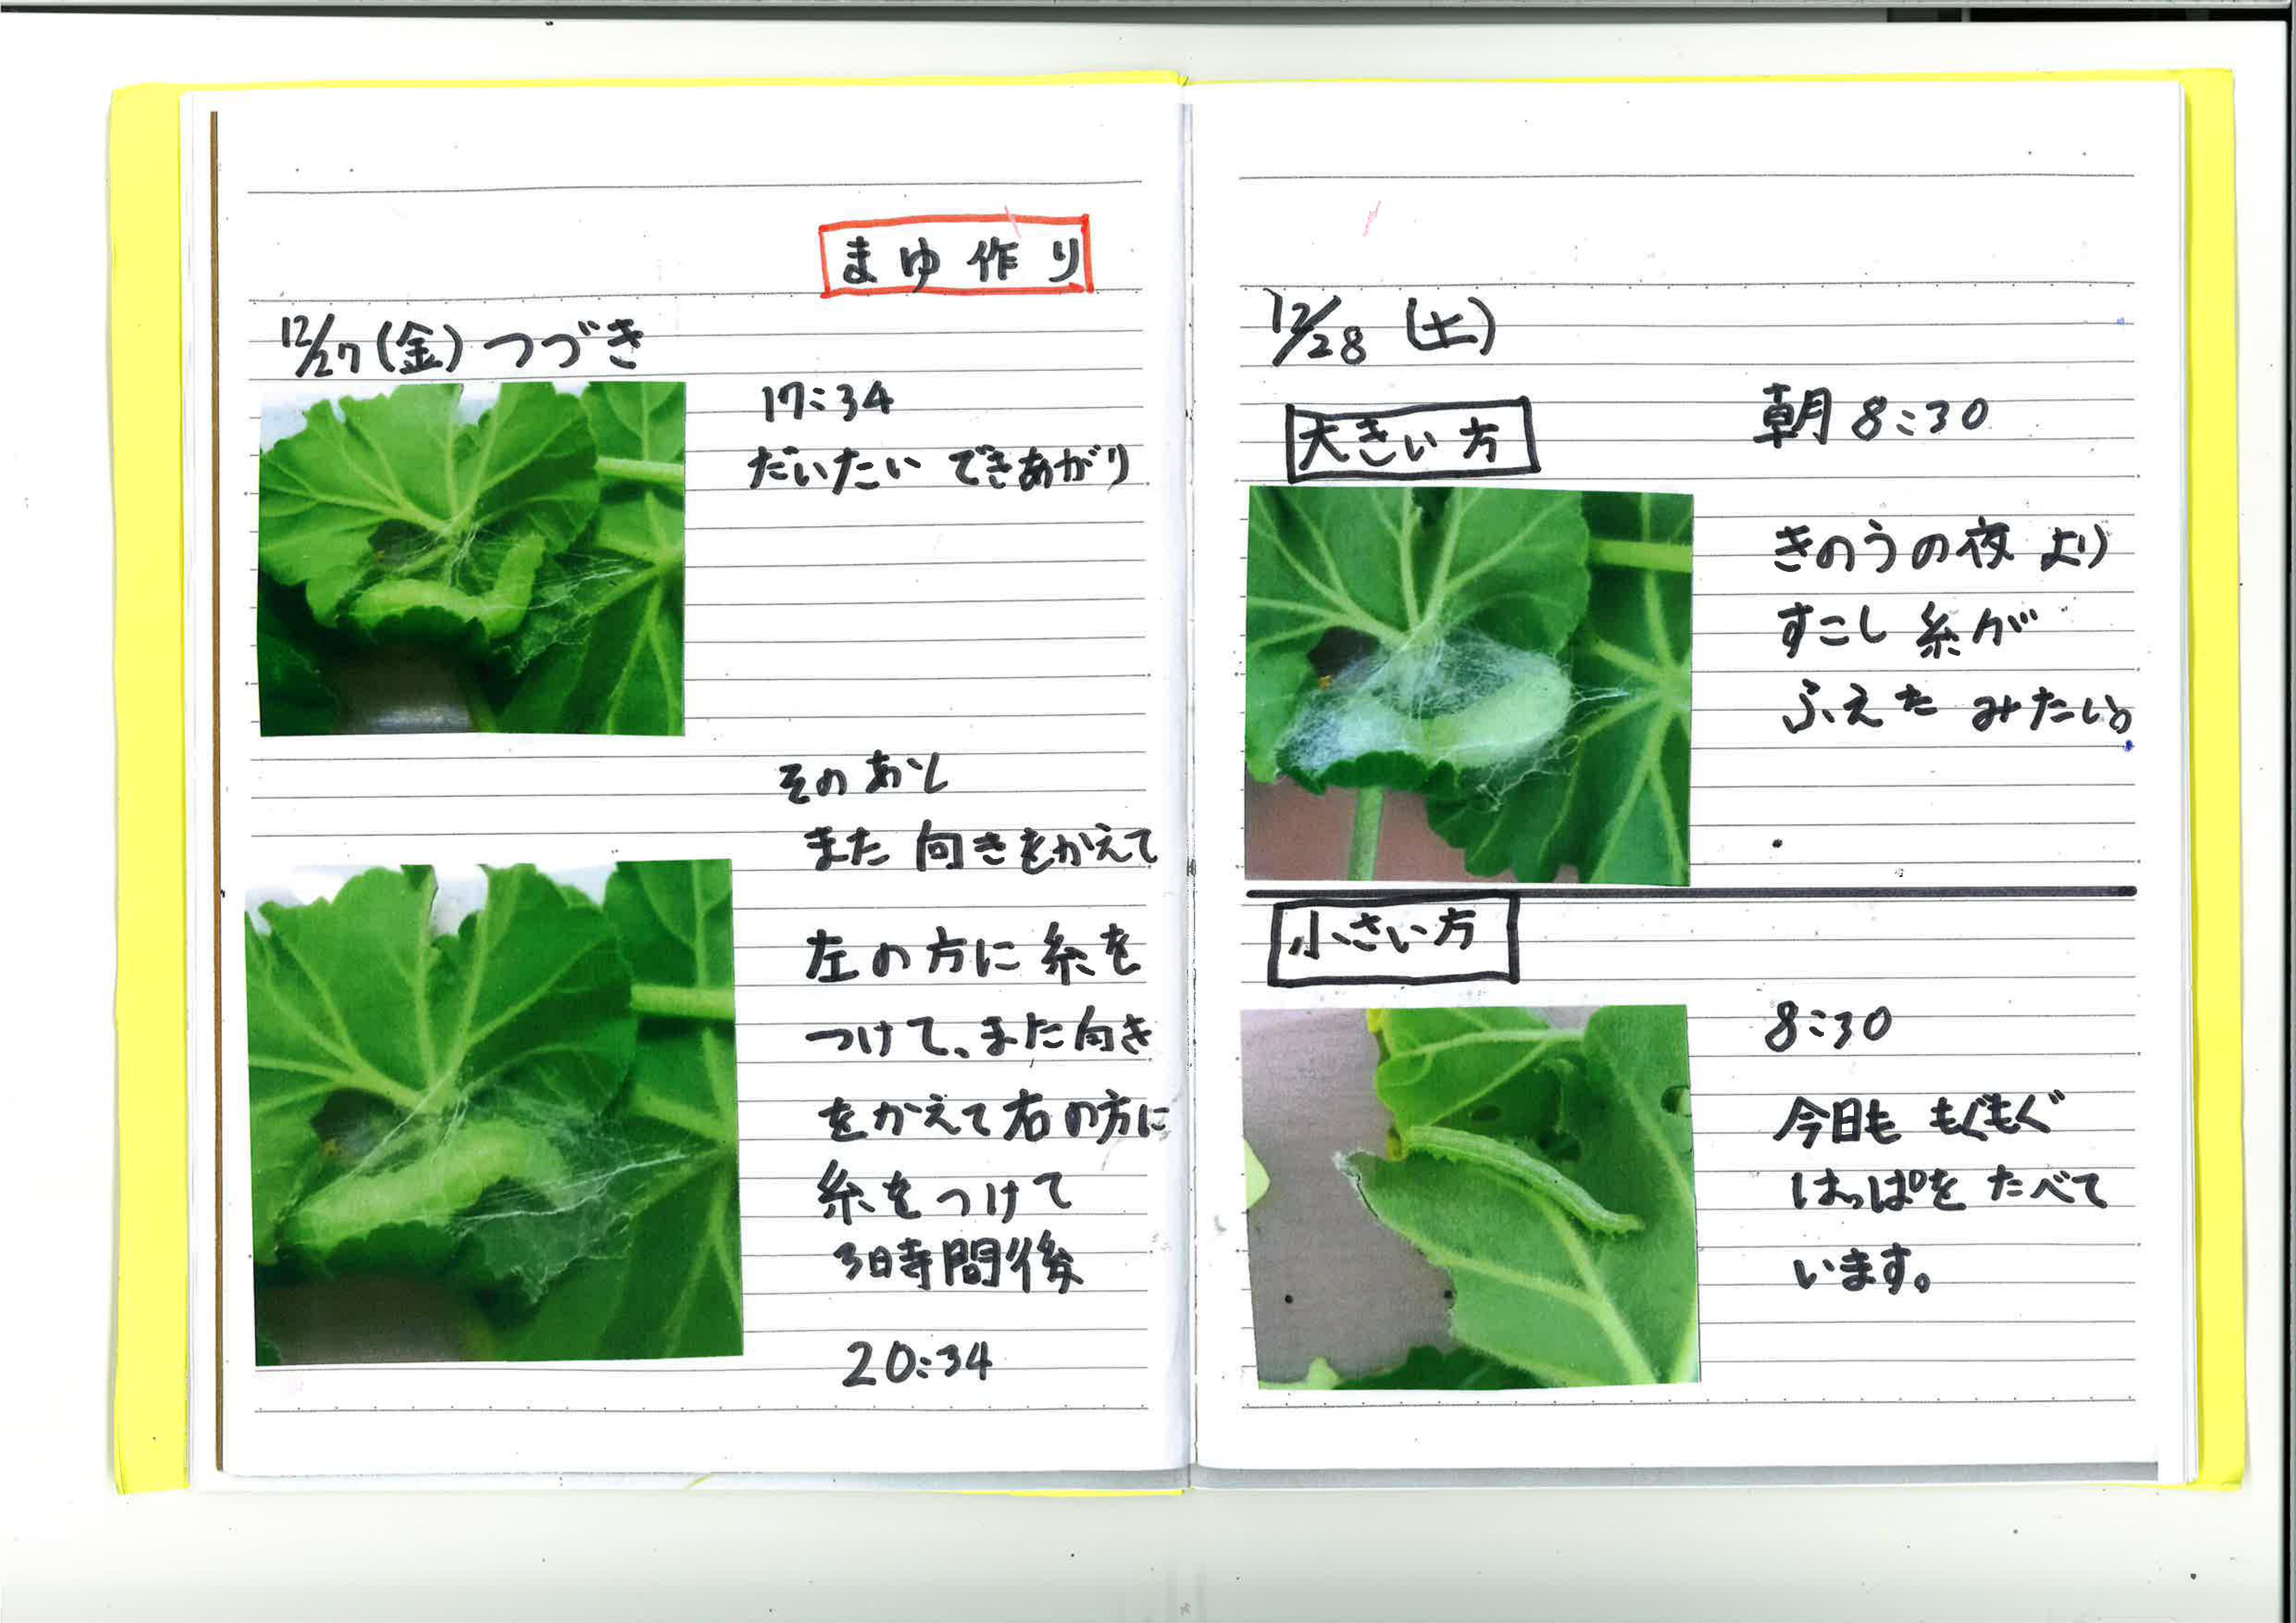 まゆ作り
12/27(金)つづき
17:34
だいたい できあがり
その
また 向きをかえて
左の方に糸を
つけて、また向き
をかえて右の方に
糸をつけて
3時間後
20:34
12/28 (土)
大きい方
朝 8:30
きのうの夜 より
すこし 糸が
ふえた みたい。
小さい方
8:30
今日も もぐもぐ
はっぱを たべて
います。